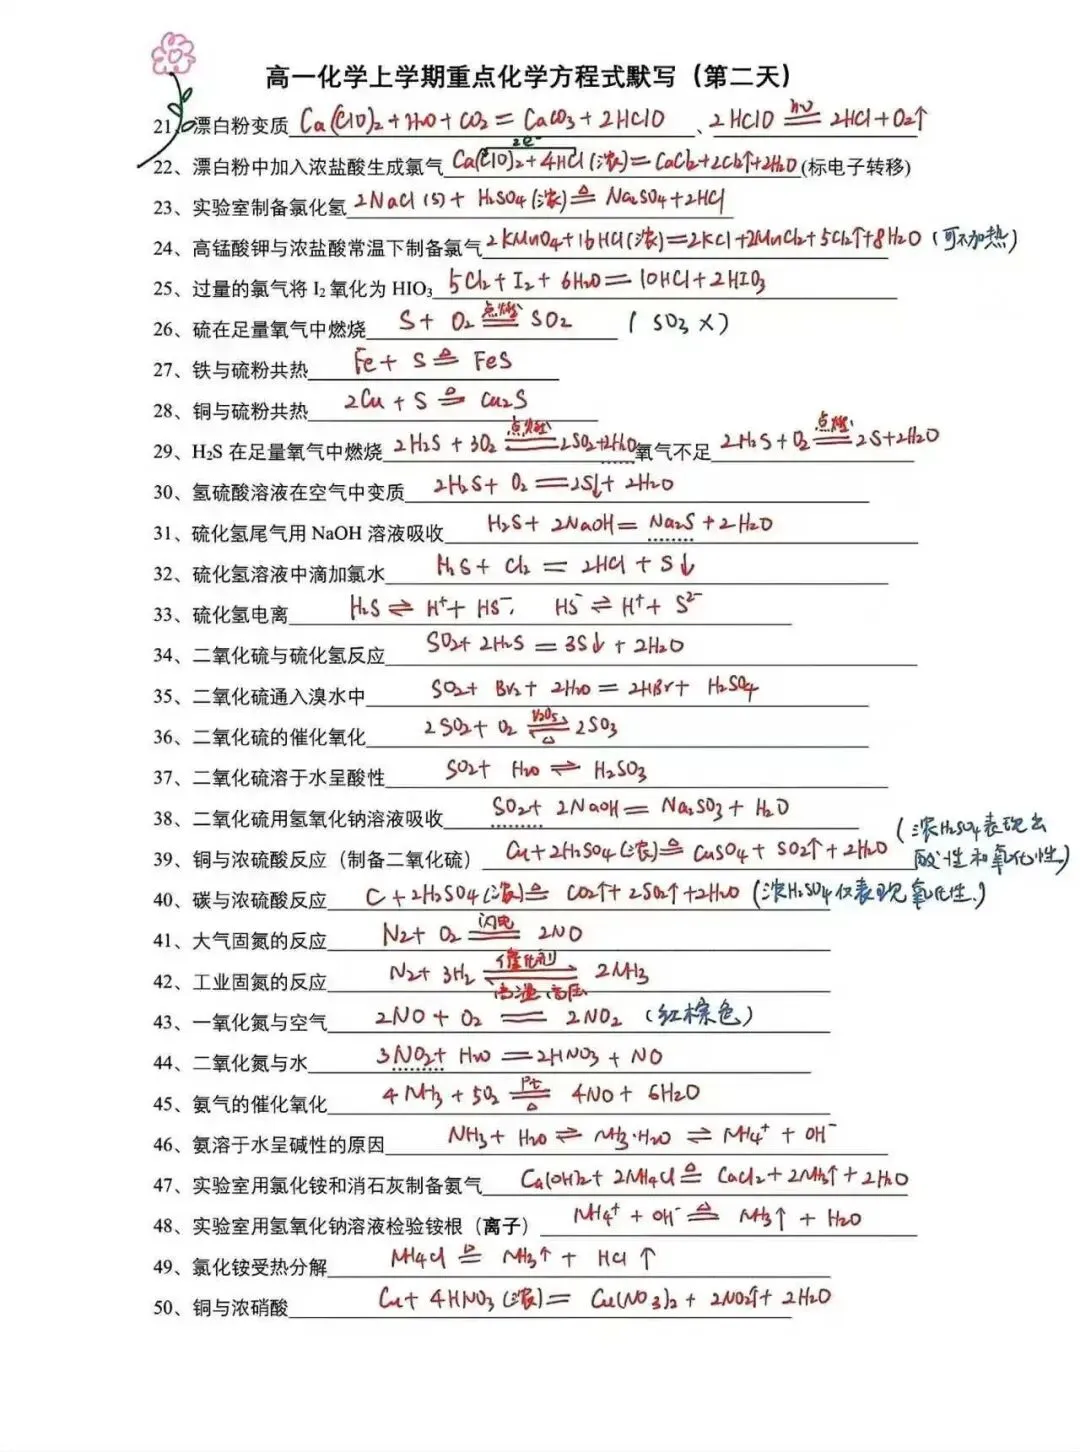 高一化学上学期重点化学方程式默写（第二天）
21、漂白粉变质 Ca(ClO)₂+H₂O+CO₂=CaCO₃+2HClO 、2HClO =hν= 2HCl+O₂↑
22、漂白粉中加入浓盐酸生成氯气 2e⁻ Ca(ClO)₂+4HCl(浓)=CaCl₂+2Cl₂↑+2H₂O (标电子转移)
23、实验室制备氯化氢 2NaCl(s)+H₂SO₄(浓) =△= Na₂SO₄+2HCl
24、高锰酸钾与浓盐酸常温下制备氯气 2KMnO₄+16HCl(浓)=2KCl+2MnCl₂+5Cl₂↑+8H₂O (可不加热)
25、过量的氯气将 I₂ 氧化为 HIO₃ 5Cl₂+I₂+6H₂O=10HCl+2HIO₃
26、硫在足量氧气中燃烧 S+O₂ =点燃= SO₂ (SO₃ ×)
27、铁与硫粉共热 Fe+S =△= FeS
28、铜与硫粉共热 2Cu+S =△= Cu₂S
29、H₂S 在足量氧气中燃烧 2H₂S+3O₂ =点燃= 2SO₂+2H₂O 氧气不足 2H₂S+O₂ =点燃= 2S+2H₂O
30、氢硫酸溶液在空气中变质 2H₂S+O₂=2S↓+2H₂O
31、硫化氢尾气用 NaOH 溶液吸收 H₂S+2NaOH=Na₂S+2H₂O
32、硫化氢溶液中滴加氯水 H₂S+Cl₂=2HCl+S↓
33、硫化氢电离 H₂S⇌H⁺+HS⁻, HS⁻⇌H⁺+S²⁻
34、二氧化硫与硫化氢反应 SO₂+2H₂S=3S↓+2H₂O
35、二氧化硫通入溴水中 SO₂+Br₂+2H₂O=2HBr+H₂SO₄
36、二氧化硫的催化氧化 2SO₂+O₂ ⇌(V₂O₅ △) 2SO₃
37、二氧化硫溶于水呈酸性 SO₂+H₂O⇌H₂SO₃
38、二氧化硫用氢氧化钠溶液吸收 SO₂+2NaOH=Na₂SO₃+H₂O
39、铜与浓硫酸反应（制备二氧化硫） Cu+2H₂SO₄(浓) =△= CuSO₄+SO₂↑+2H₂O (浓H₂SO₄表现出
酸性和氧化性.)
40、碳与浓硫酸反应 C+2H₂SO₄(浓) =△= CO₂↑+2SO₂↑+2H₂O (浓H₂SO₄仅表现氧化性.)
41、大气固氮的反应 N₂+O₂ =闪电= 2NO
42、工业固氮的反应 N₂+3H₂ ⇌(催化剂 高温、高压) 2NH₃
43、一氧化氮与空气 2NO+O₂=2NO₂ (红棕色)
44、二氧化氮与水 3NO₂+H₂O=2HNO₃+NO
45、氨气的催化氧化 4NH₃+5O₂ =(Pt △)= 4NO+6H₂O
46、氨溶于水呈碱性的原因 NH₃+H₂O⇌NH₃·H₂O⇌NH₄⁺+OH⁻
47、实验室用氯化铵和消石灰制备氨气 Ca(OH)₂+2NH₄Cl =△= CaCl₂+2NH₃↑+2H₂O
48、实验室用氢氧化钠溶液检验铵根（离子） NH₄⁺+OH⁻ =△= NH₃↑+H₂O
49、氯化铵受热分解 NH₄Cl =△= NH₃↑+HCl↑
50、铜与浓硝酸 Cu+4HNO₃(浓)=Cu(NO₃)₂+2NO₂↑+2H₂O